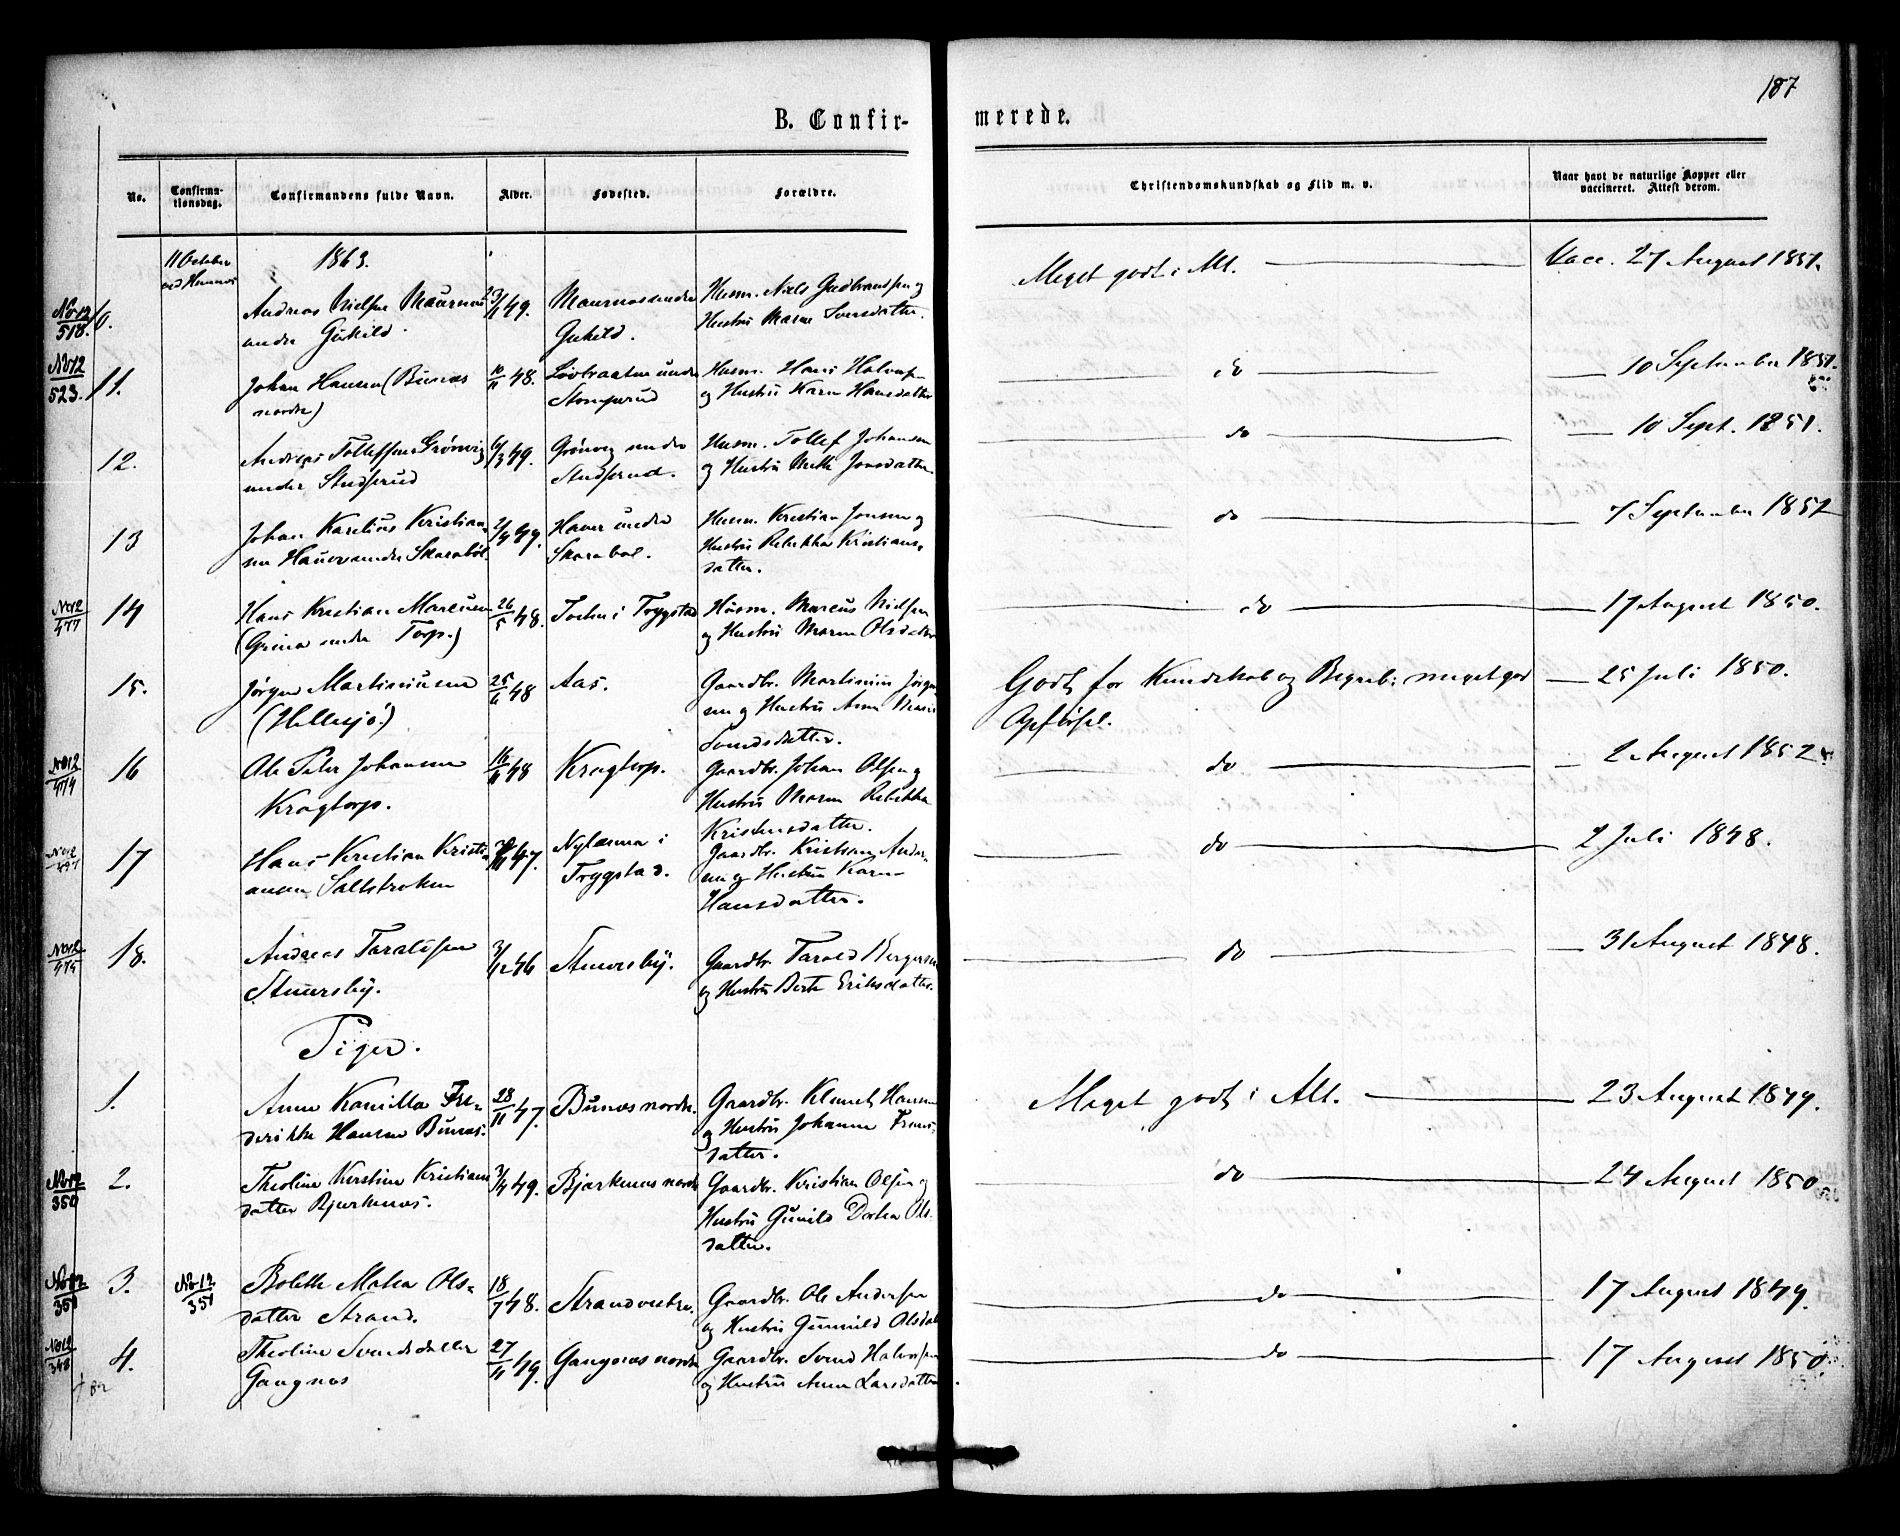 187
B. Confir-
merede.
No.
Confirma-
tionsdag.
Confirmandens fulde Navn.
Alder.
Fødested.
Forældre.
Christendomskundskab og Flid m. v.
Naar havt de naturlige Kopper eller
vaccineret. Attest derom.
11 October
ved Hemnes
1863.
No 12
518.
10.
Andreas Nielsen Maurnes
under Gukild
49.
Maurnes under
Gukild.
Husm. Niels Gudbransen og
Hustru Maren Svensdatter.
Meget godt i Alt.
Vacc. 27 August 1851.
No 12
523.
11.
Johan Hansen (Bunæs
nordre)
10/11 48.
Løvbraaten under
Stomperud
Husm. Hans Halvorsen
og Hustru Karen Hansdatter
do
10 September 1851.
12.
Andreas Tollefsen Grønvig
under Studserud
6/3 49.
Grønvig under
Studserud.
Husm. Tollef Johansen
og Hustru Mette Jonsdatter
do
10 Sept. 1851.
13
Johan Karelius Kristian-
sen Haver under Skarabøl
2/4 49.
Haver under
Skarabøl.
Husm. Kristian Jonsen og
Hustru Rebekka Kristians-
datter.
do
7 September 1852
No 12
477
14
Hans Kristian Marcusen
(Grina under Torp.)
26/5 48.
i Trygstad
Husm. Marcus Nielsen
og Hustru Maren Olsdatter
do
17 August 1850.
15.
Jørgen Martiniusen
(Hellesjø.)
25/6 48
Aas.
Gaardbr. Martinius Jørgen-
sen og Hustru Anne Marie
Svendsdatter.
Godt for Kundskab og Begreb; meget god
Opførsel.
25 Juli 1850.
No 12
474
16
Ole Peter Johansen
Kragtorp.
16/11 48
Kragtorp.
Gaardbr. Johan Olsen og
Hustru Maren Rebekka
Kristensdatter.
do
2 August 1852
No 12
17
Hans Kristian Kristi-
ansen Saltstroken
47.
i
Trygstad.
Gaardbr. Kristian Ander-
sen og Hustru Karen
Hansdatter.
do
2 Juli 1848.
No 12
475
18.
Andreas Taraldsen
Stuersby.
3/12 46
Stuersby.
Gaardbr. Tarald Bergersen
og Hustru Berte Eriksdatter.
do
31 August 1848.
Piger.
1.
Anne Kamilla Fre-
derikke Hansen Bunæs.
28/11 47.
Bunæs nordre.
Gaardbr. Klemet Hansen
og Hustru Johanne Frans-
datter.
Meget godt i Alt.
23 August 1849.
No 12
350
2.
Theoline Kerstine Kristians
datter Bjerkenæs.
3/4 49.
Bjerkenæs nordre
Gaardbr. Kristian Olsen og
Hustru Gunild Dorthea Ols-
datter.
do
24 August 1850
No 12
351
3.
No 12
351
Bolette Mathea Ols-
datter Strand.
18/7 48.
Strand vestre.
Gaardbr. Ole Andersen
og Hustru Gunnild Olsdat
do
17 August 1849.
No 12
348
4.
Theoline Svendsdatter
Gangnæs
27/11 49.
Gangnæs nordre
Gaardbr. Svend Halvorsen
og Hustru Anne Larsdatter
do
17 August 1850